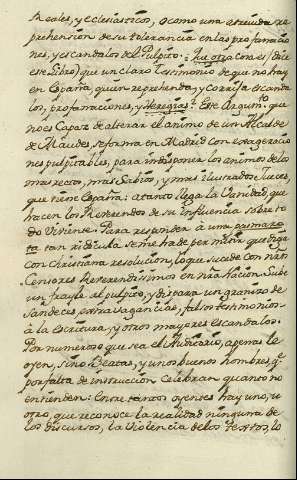 Reales, y eclesiásticos, o como una estruda re
prehension de su tolerancia en las profanacio
nes, y escandalos del Pulpito. ¿Que otra cosa es (dice
este Libro) que un claro testimonio de que no hay
en España, quien reprehenda, y corrija escanda
los, profanaciones, y Heregias? Este Argum.to
que no es capaz de alterar el animo de un Alcalde
de Aldea, se forma en Madrid con exageracio
nes pulpitables, para indisponer los animos de los
mas rectos, mas sabios, y mas ilustrados Jueces,
que tiene España: a tanto llega la Vanidad, que
hacen los Reverendos de su influencia sobre to
do Viviente. Para responder à una
ta tan ridicula se me ha de permitir, que diga
con christiana resolucion, lo que sucede con ntros
Censores Reverendissimos en ntra Nacion. Sube
un frayle al pulpito, y dispara un granizo de
sandeces extravagancias, falsos testimonios
à la Escritura, y otros mayores escandalos.
Por numeroso que sea el Auditorio, apenas le
oyen, sino Beatas, y unos buenos hombres, q.e
por falta de instruccion celebran quanto no
entienden: Entre tantos oyentes hay uno, u
otro, que reconoce la realidad ninguna de
los discursos, la violencia de los textos, lo